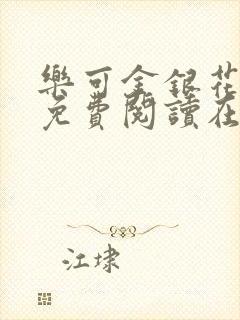 樂可金銀花
免費閱讀在
江埭